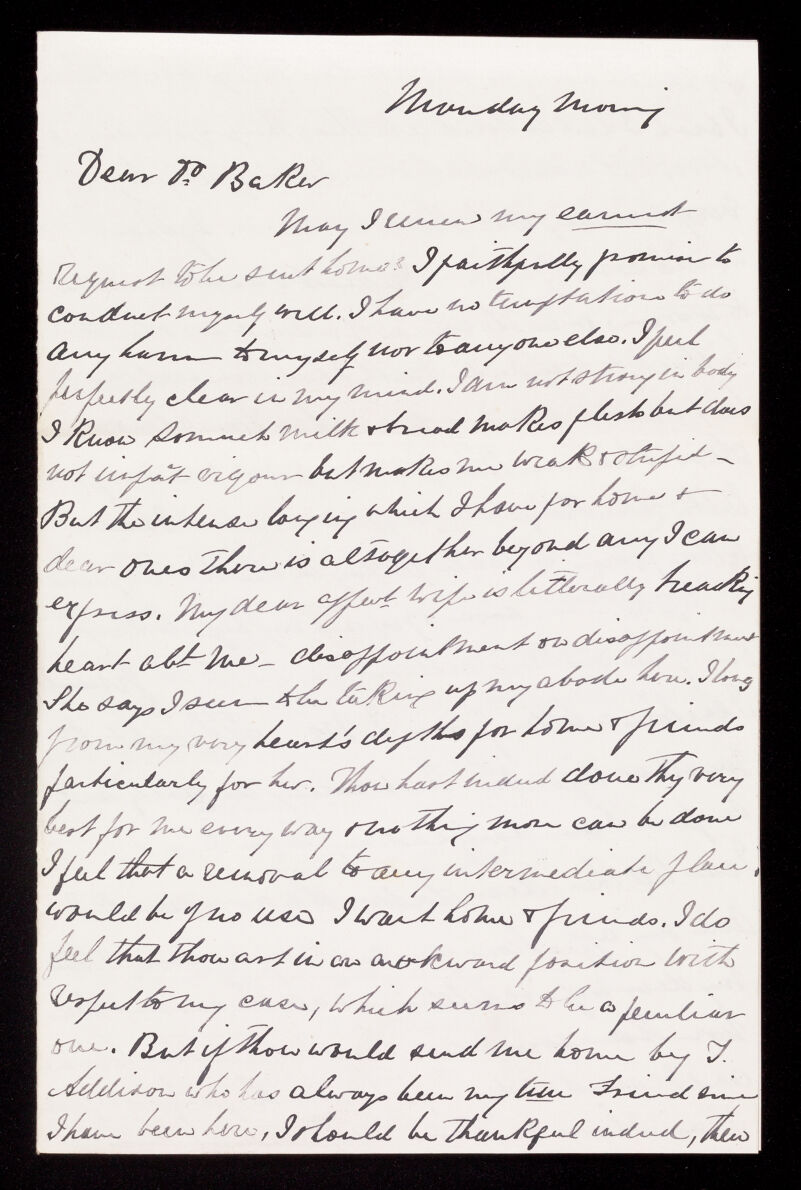 Monday Morng
Dear Dr. Baker
May I renew my earnest
request to be sent home? I faithfully promise to
conduct myself well. I have no temptation to do
any harm to myself nor to anyone else. I feel
perfectly clear in my mind. I am not strong in body
I know so much milk & bread makes flesh but does
not impart vigour but makes me weak & stupid –
But the intense longing which I have for home &
dear ones there is altogether beyond any I can
express. My dear affect. wife is litterally breaking
heart abt. me – disappointment on disappointment
She says I seem to be taking up my abode here. I long
from my very heart's depths for home & friends
particularly for her. Thou hast indeed done thy very
best for me every way & nothing more can be done
I feel that a removal to any intermediate place,
would be of no use I want home & friends. I do
feel that thou art in an awkward position with
respect to my case, which seems to be a peculiar
one. But if thou would send me home by T.
Addison who has always been my true Friend since
I have been here, I should be thankful indeed, then